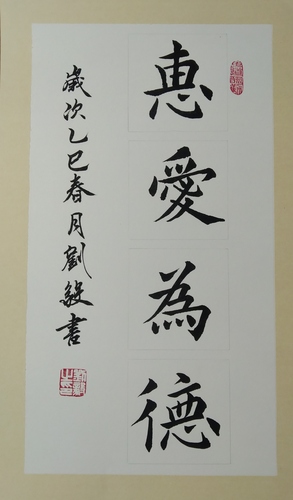 惠愛為德
歲次乙巳春月劉毅書